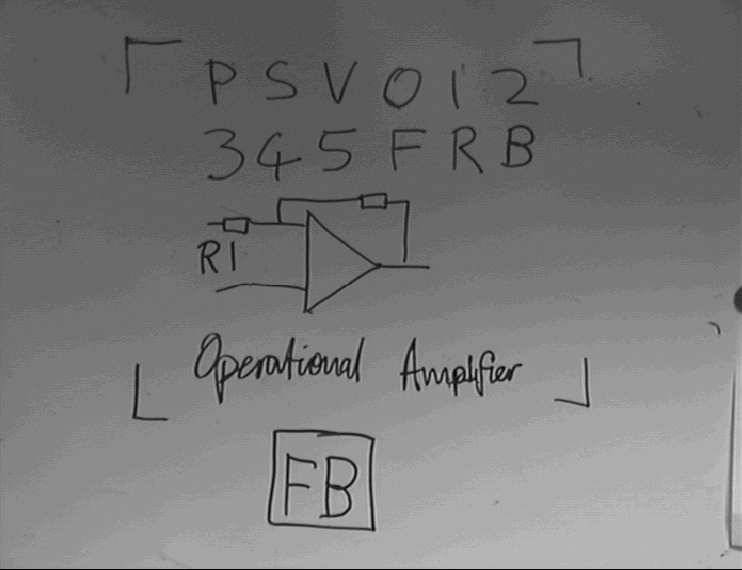 PSV012
345FRB
R1
Operational Amplifier
FB